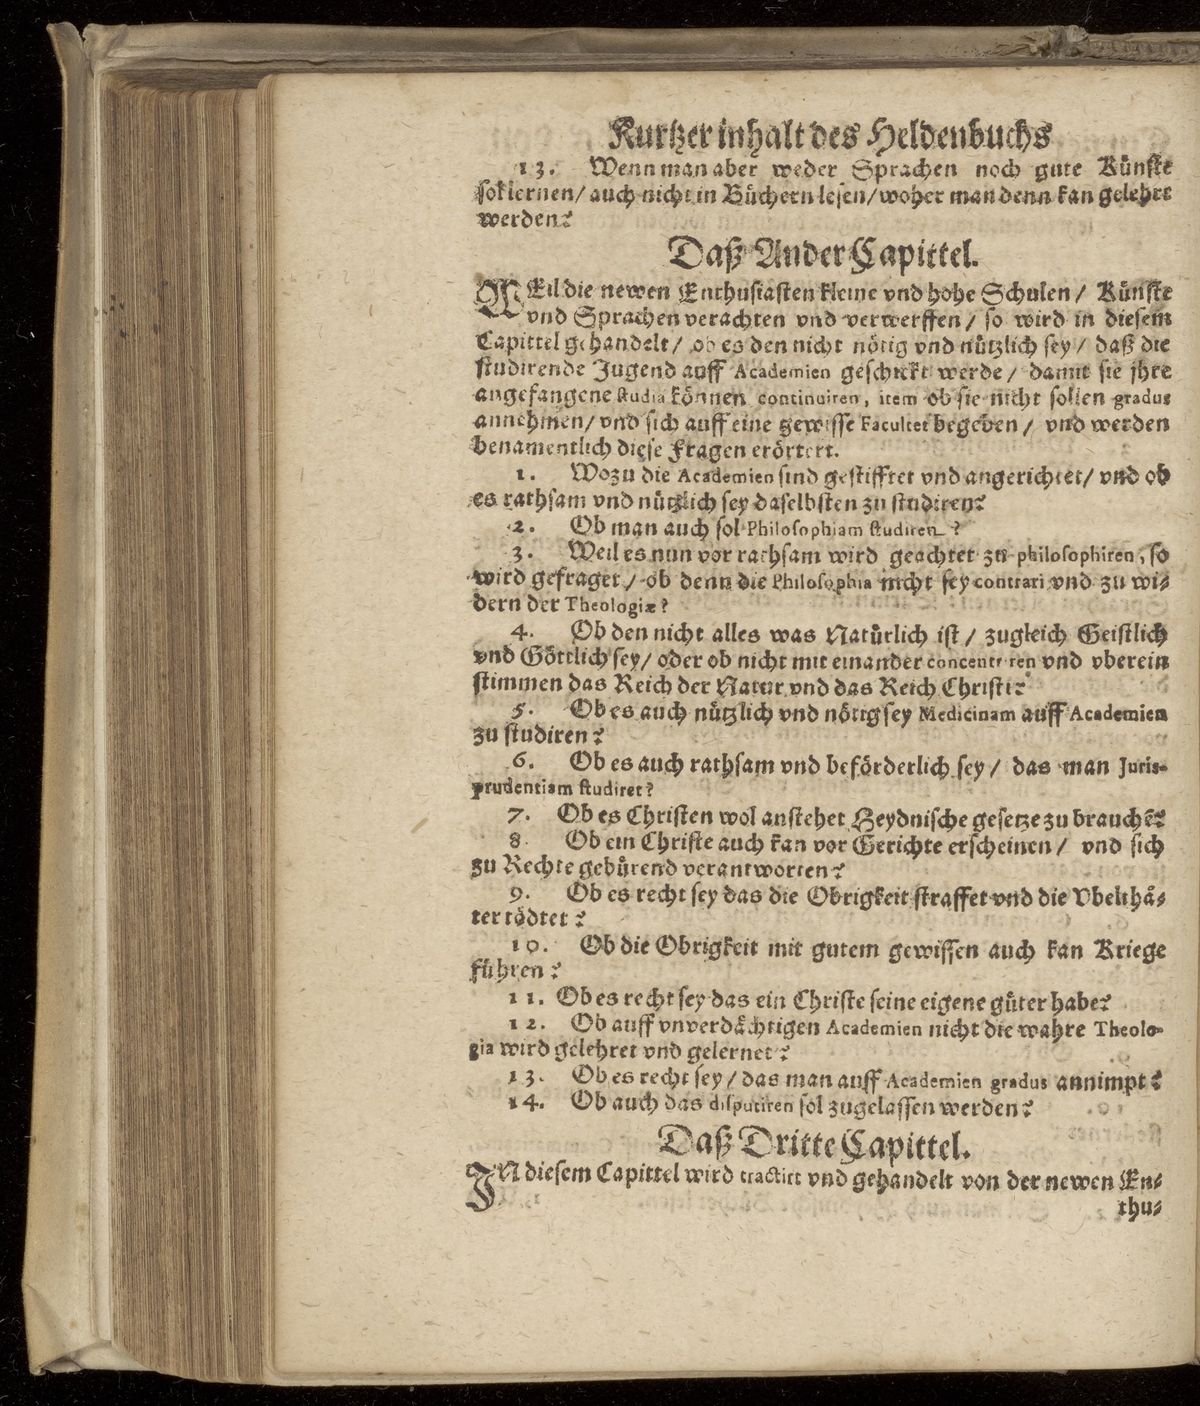 Kurtzer inhalt des Heldenbuchs
13. Wenn man aber weder Sprachen noch gute Künste
sol lernen/ auch nicht in Büchern lesen/ woher man denn kan gelehrt
werden?
Daß Ander Capittel.
WEil die newen Enthusiasten kleine vnd hohe Schulen/ Künste
vnd Sprachen verachten vnd verwerffen/ so wird in diesem
Capittel gehandelt/ ob es den nicht nötig vnd nützlich sey/ daß die
studirende Jugend auff Academien geschickt werde/ damit sie jhre
angefangene studia können continuiren, item ob sie nicht sollen gradus
annehmen/ vnd sich auff eine gewisse Facultet begeben/ vnd werden
benamentlich diese Fragen erörtert.
1. Wozu die Academien sind gestifftet vnd angerichtet/ vnd ob
es rathsam vnd nützlich sey daselbsten zu studiren?
2. Ob man auch sol Philosophiam studiren?
3. Weil es nun vor rathsam wird geachtet zu philosophiren, so
wird gefraget/ ob denn die Philosophia nicht sey contrari vnd zu wi-
dern der Theologiæ?
4. Ob den nicht alles was Natürlich ist/ zugleich Geistlich
vnd Göttlich sey/ oder ob nicht mit einander concentriren vnd vberein
stimmen das Reich der Natur vnd das Reich Christi?
5. Ob es auch nützlich vnd nötig sey Medicinam auff Academien
zu studiren?
6. Ob es auch rathsam vnd beförderlich sey/ das man Juris-
prudentiam studiret?
7. Ob es Christen wol anstehet Heydnische gesetze zu brauchẽ?
8. Ob ein Christe auch kan vor Gerichte erscheinen/ vnd sich
zu Rechte gebürend verantworten?
9. Ob es recht sey das die Obrigkeit straffet vnd die Vbelthä-
ter tödtet?
10. Ob die Obrigkeit mit gutem gewissen auch kan Kriege
führen?
11. Ob es recht sey das ein Christe seine eigene güter habe?
12. Ob auff vnverdächtigen Academien nicht die wahre Theolo-
gia wird gelehret vnd gelernet?
13. Ob es recht sey/ das man auff Academien gradus annimpt?
14. Ob auch das disputiren sol zugelassen werden?
Daß Dritte Capittel.
IN diesem Capittel wird tractirt vnd gehandelt von der newen En-
thu-